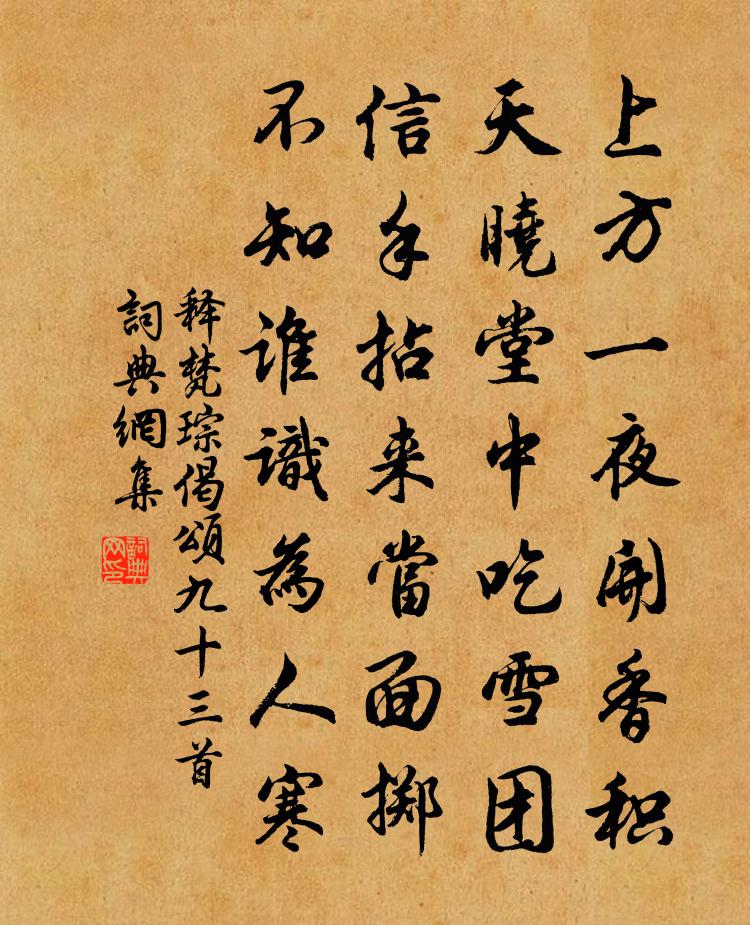 上方一夜開香积
天曉堂中吃雪团
信手拈来當面掷
不知谁識為人寒
释梵琮偈頌九十三首
詞典網集
詞典网印